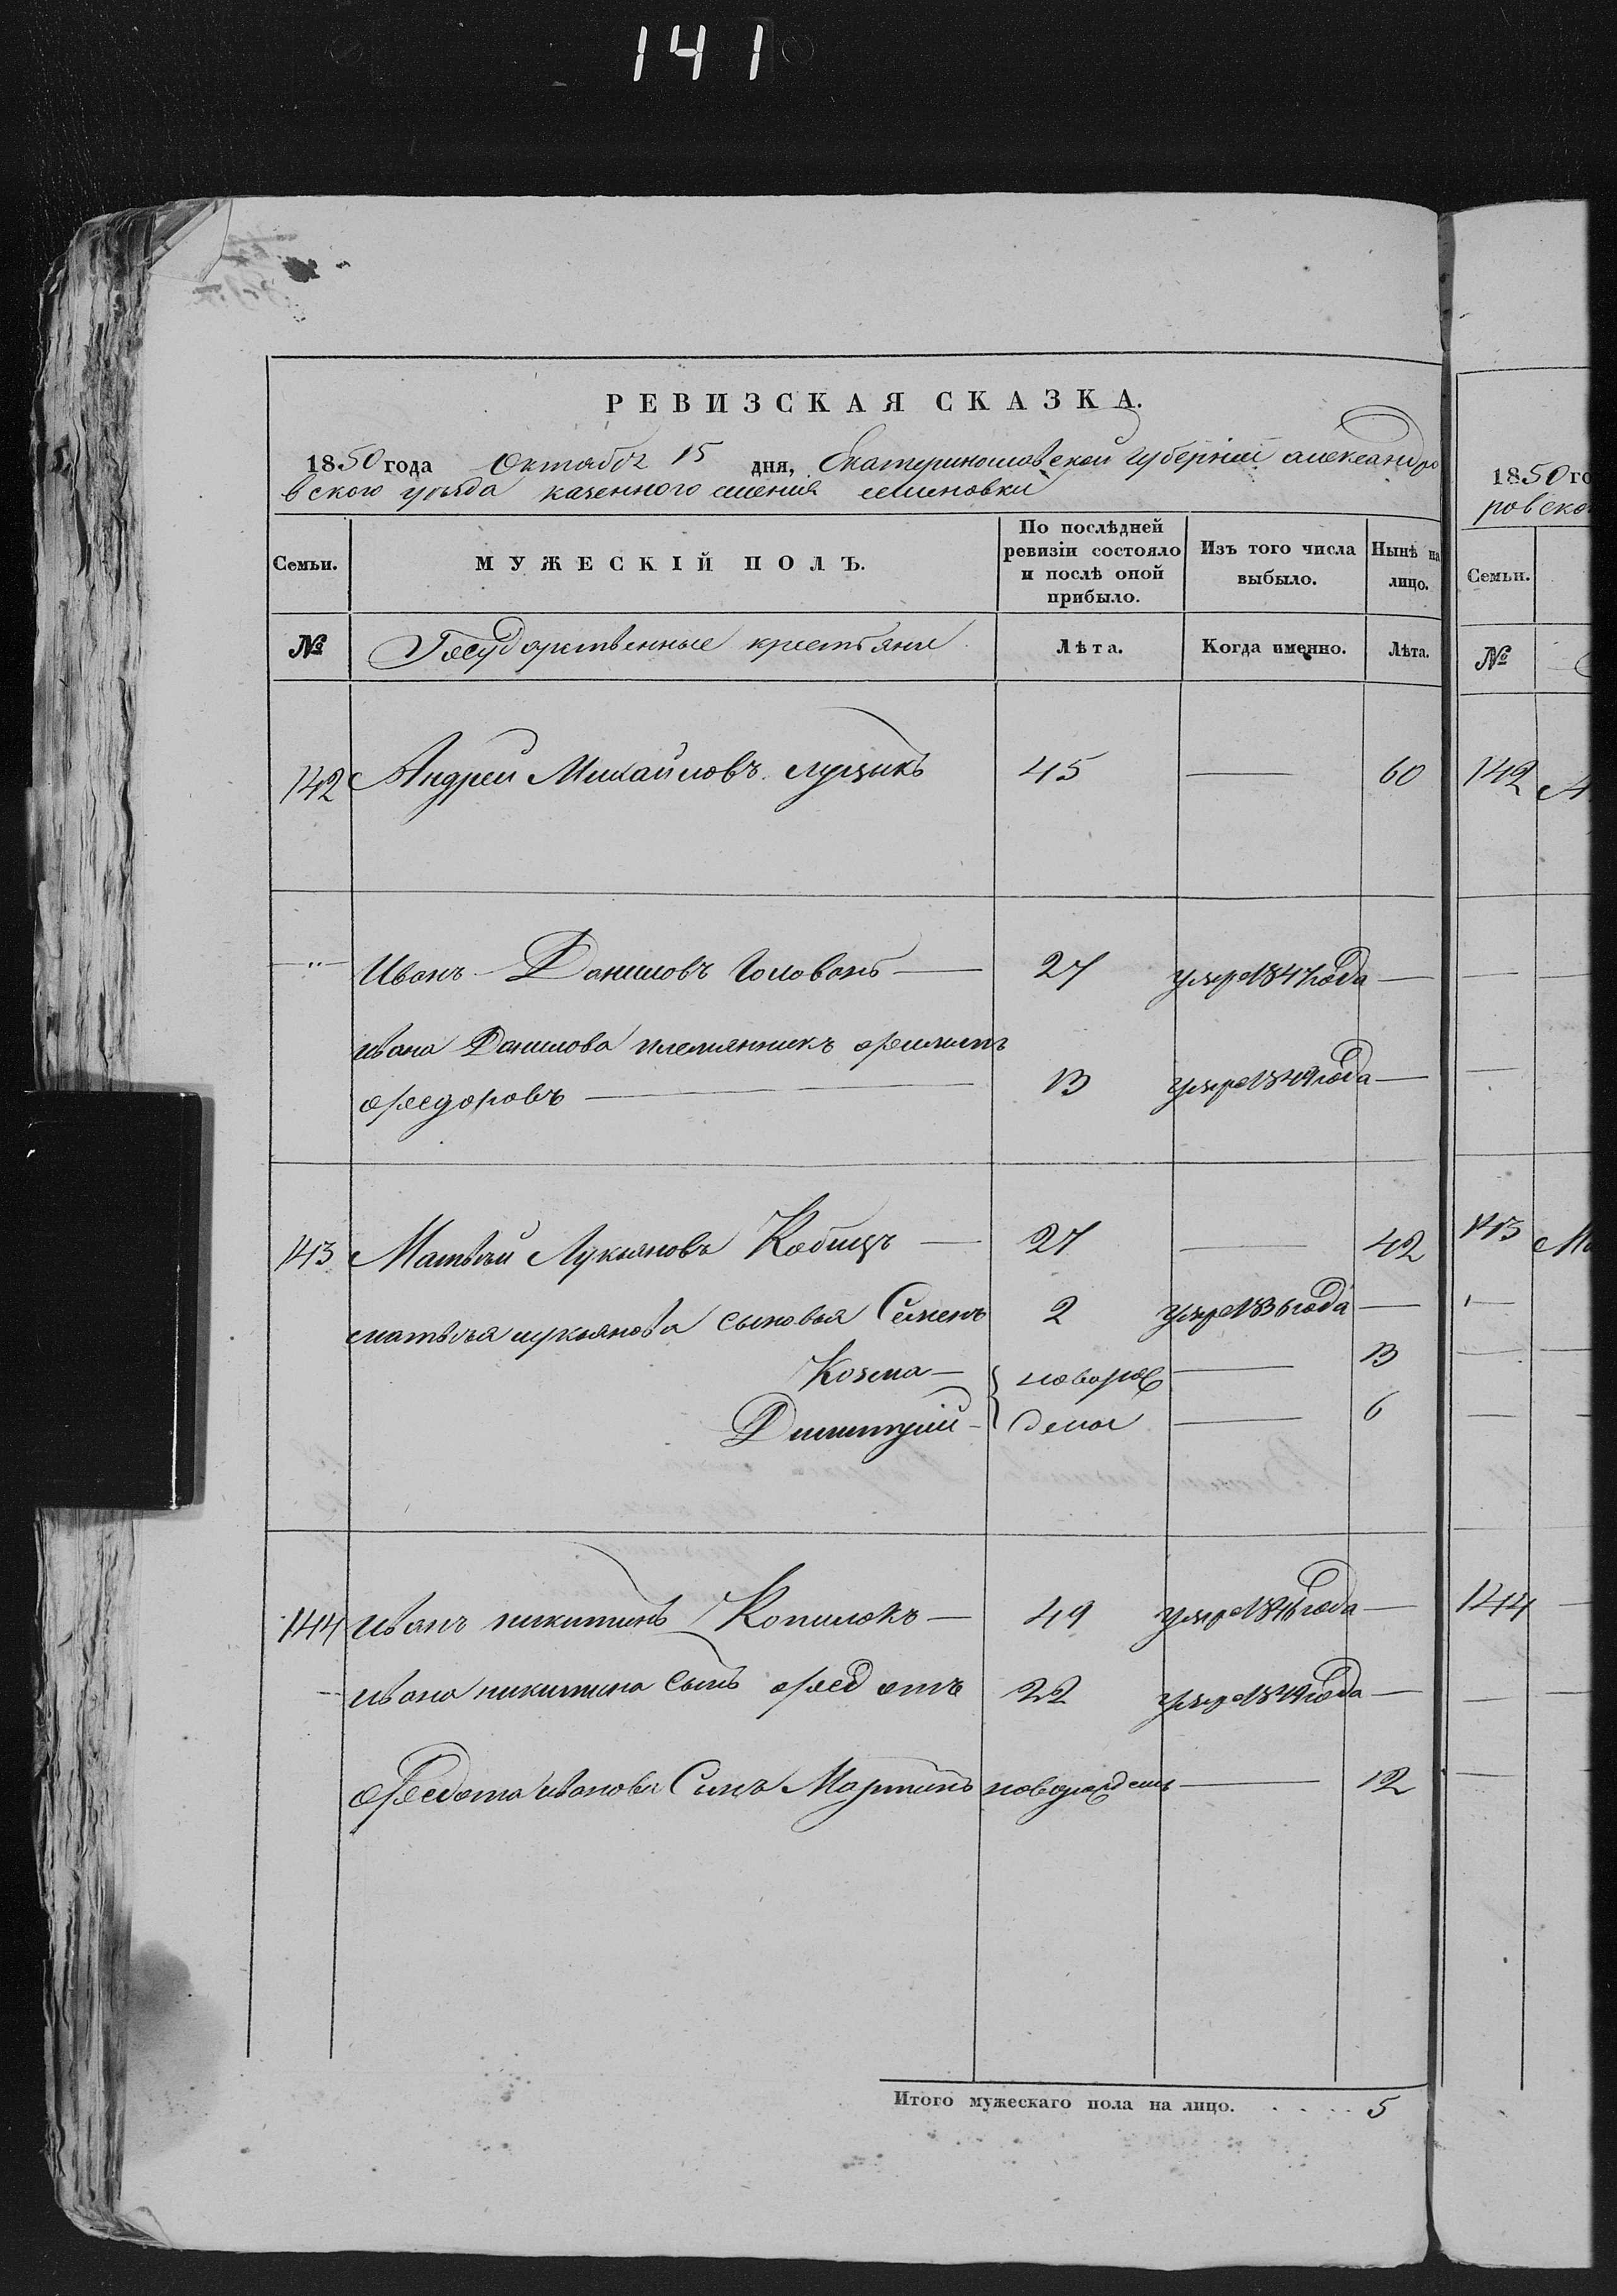 141
РЕВИЗСКАЯ СКАЗКА.
1850 года Октября 15 дня, Екатеринославской губерніи александро
вского уѣзда казенного селенія семеновки
Семьи. МУЖЕСКІЙ ПОЛЪ. По послѣдней ревизіи состояло и послѣ оной прибыло. Изъ того числа выбыло. Нынѣ на лицо.
№ Государственные крестьяне Лѣта. Когда именно. Лѣта.
142 Андрей Михайловъ 45 — 60
— " Иванъ Даниловъ Головань — 27 умре 1847 года —
ивана Данилова племянникъ филипъ
федоровъ — 13 умре 1849 года —
143 Матвѣй Лукьяновъ Кобицъ — 27 — 42
матвѣя лукьянова сыновья Семенъ 2 умре 1836 года —
Козма — новорож — 13
Димитрій — дены — 6
144 иванъ никитинъ Копилокъ — 49 умре 1846 года —
ивана никитина сынъ федотъ 22 умре 1849 года —
федота иванова Сынъ Мартинъ новорожденъ — 12
Итого мужескаго пола на лицо. . . . . 5
1850 го
ровско
Семьи.
№
142 А
143 М
144